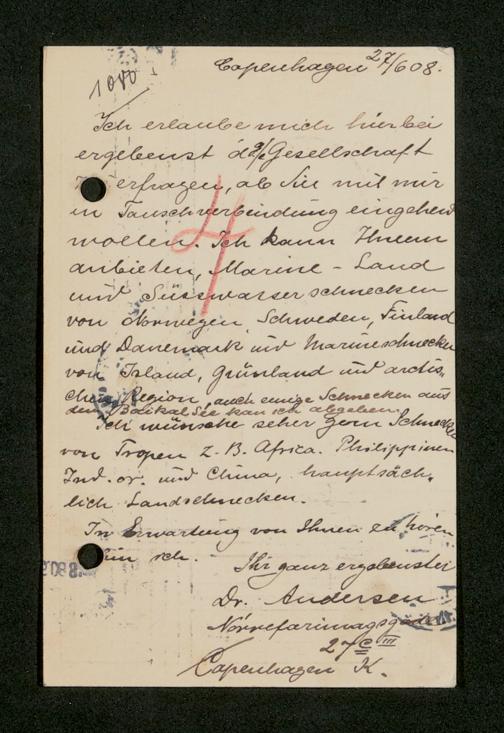 1080
Copenhagen 27/6 08.
Ich erlaube mich hierbei
ergebenst Gesellschaft
erfragen, ob Sie mit mir
in Tauschverbindung eingehen
wollen. Ich kann Ihnen
anbieten, Marine - Land
und Süsswasserschnecken
von Norwegen, Schweden, Finland
und Danemark und Marineschnecken
von Island, Grünland und arctis,
chen Region, auch einige Schnecken aus
dem Baikal See kan ich abgeben.
Ich wünsche seher gern Schnecken
von Tropen z. B. Africa. Philippinen
Ind. or. und China, hauptsäch,
lich Landschnecken.
In Erwartung von Ihnen zu hören
bin ich.
Ihr ganz ergebenster
Dr. Andersen
Nörrefarimagsgade
27 C III
Copenhagen K.
4